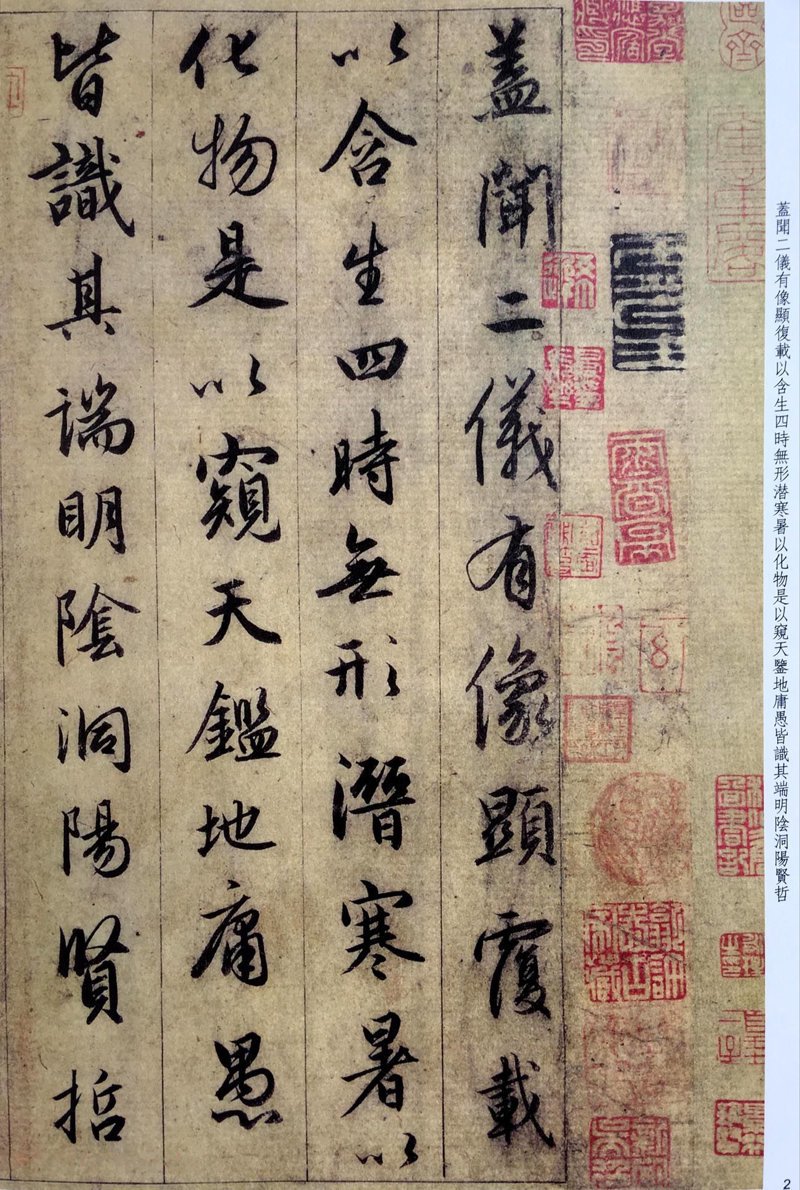 蓋聞二儀有像顯覆載
以含生四時無形潛寒暑以
化物是以窺天鑑地庸愚
皆識其端明陰洞陽賢哲
蓋聞二儀有像顯復載以含生四時無形潜寒暑以化物是以窺天鑒地庸愚皆識其端明陰洞陽賢哲
2